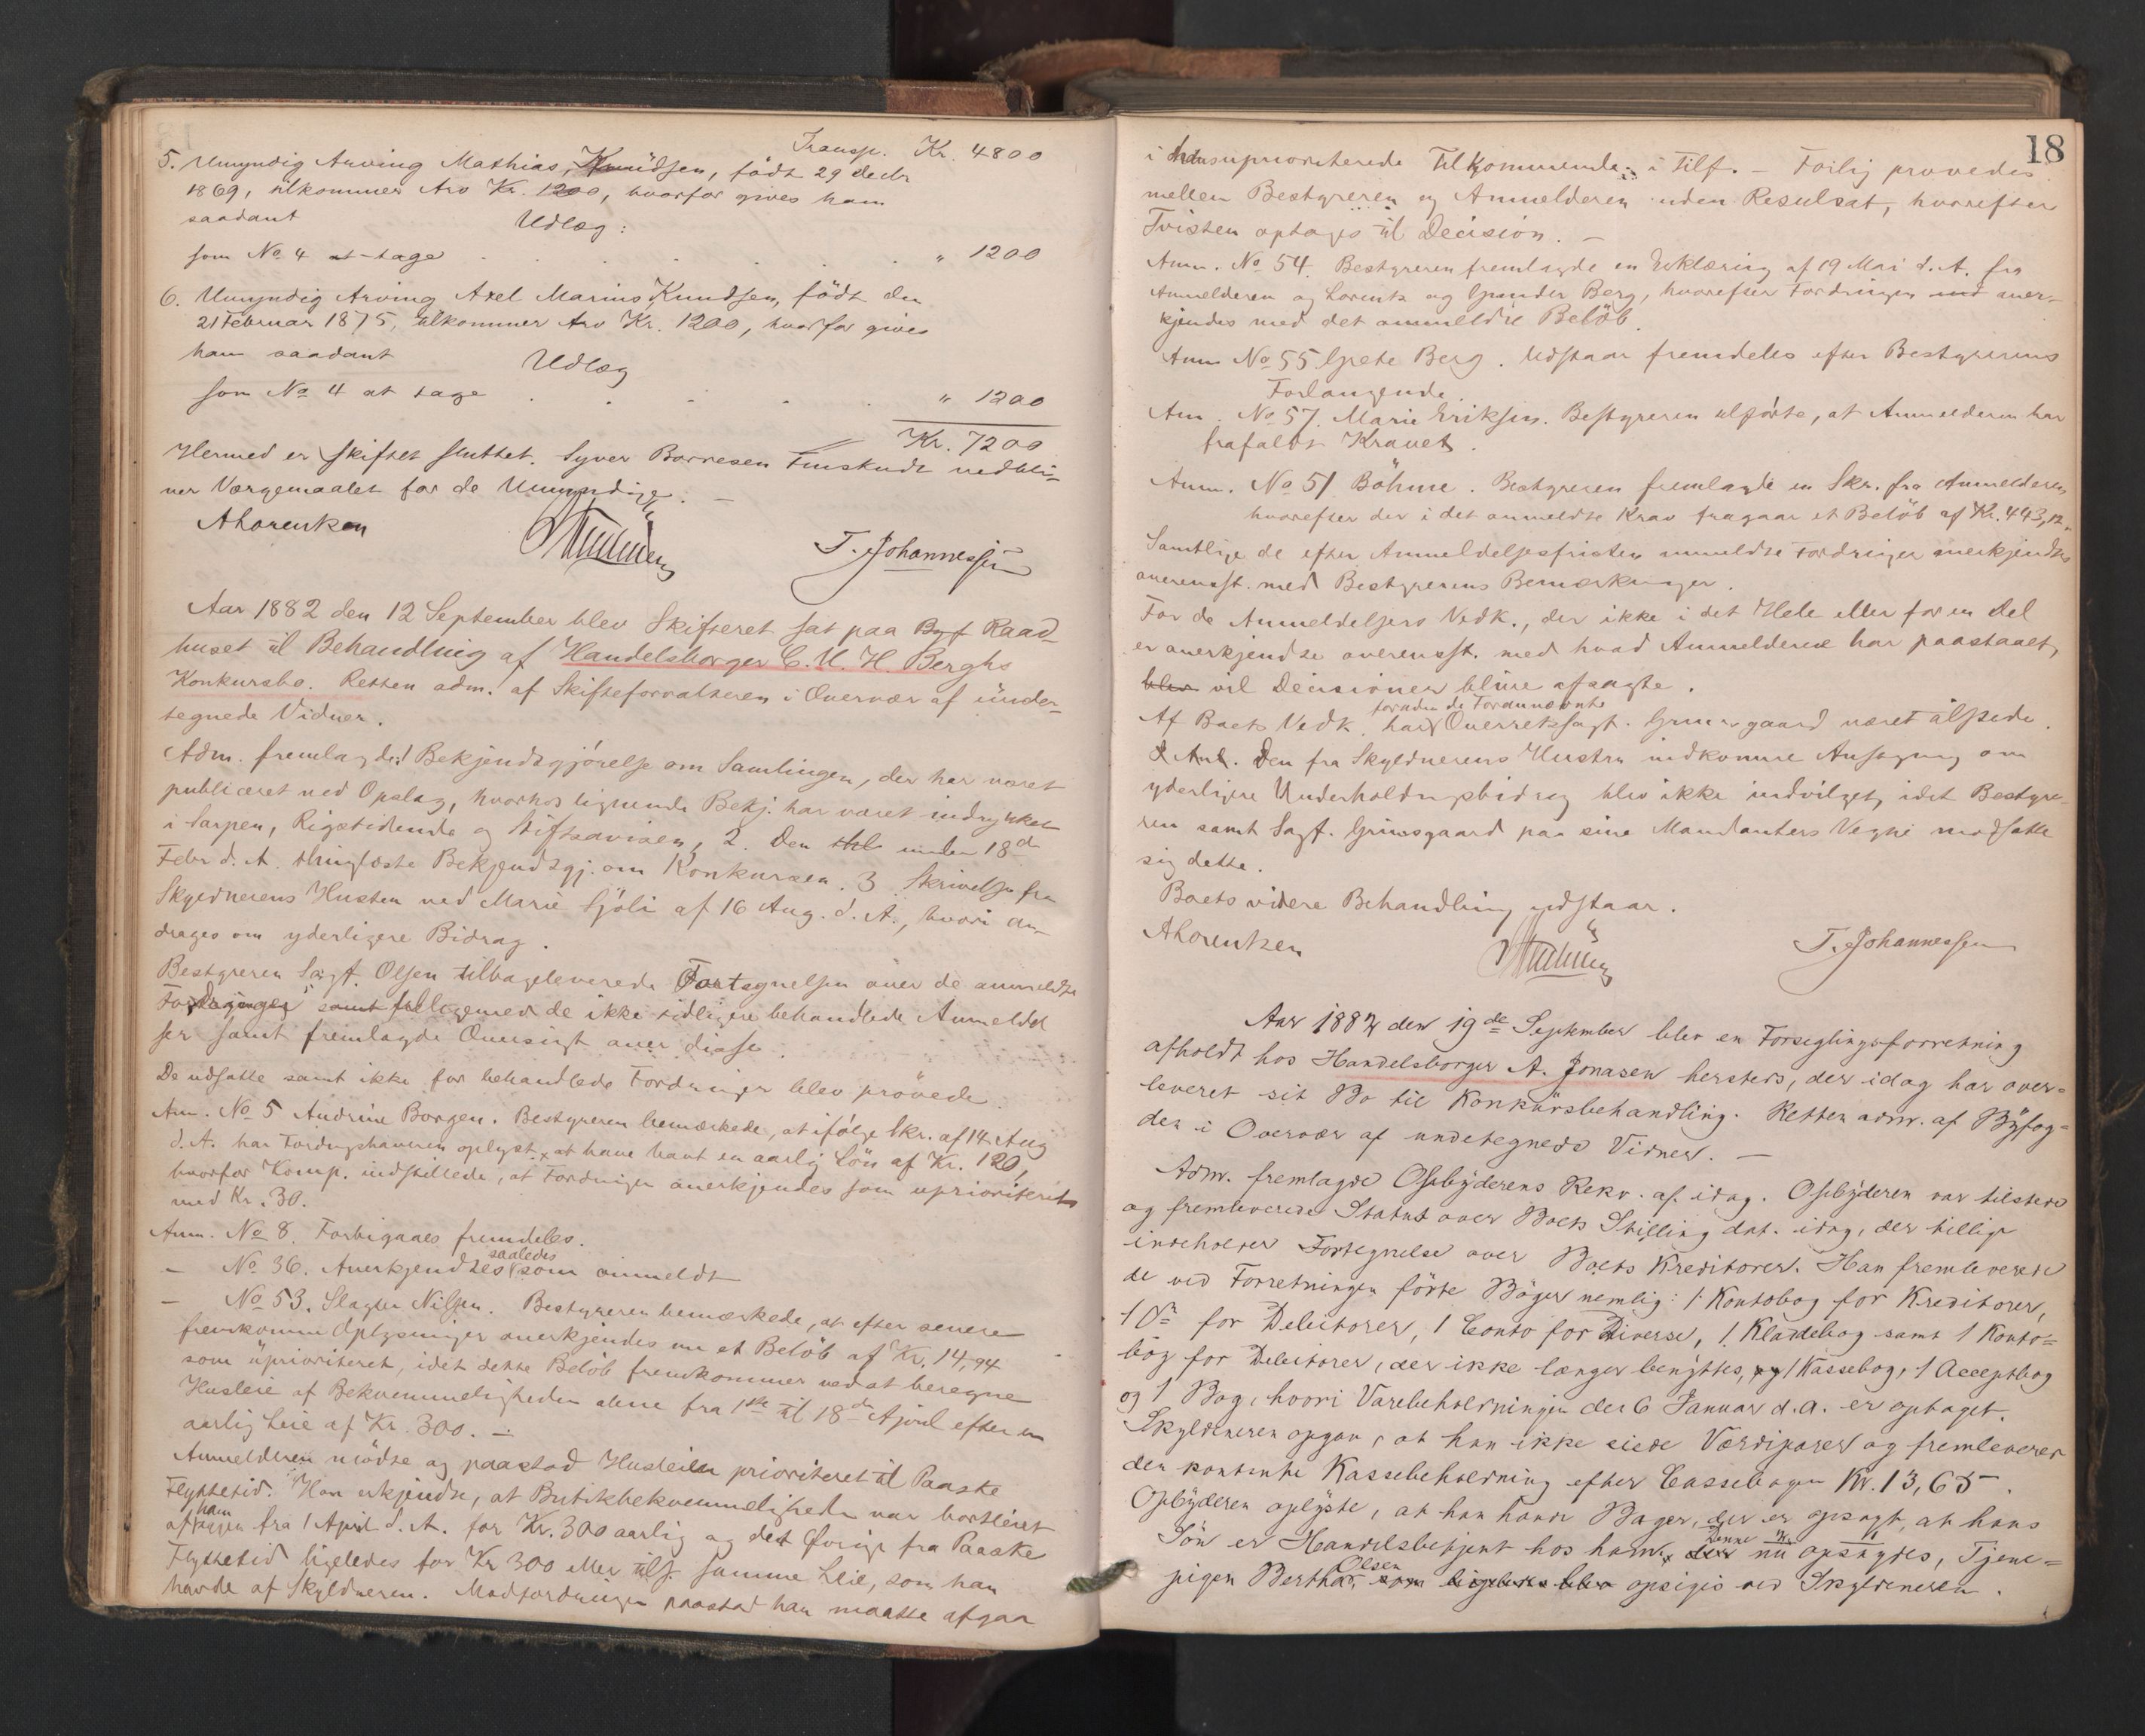 Transp. Kr. 4800
5. Umyndig Arving Mathias Knudsen, født 29 Decbr
1869, tilkommer Arv Kr. 1200, hvorfor gives ham
saadant Udlæg:
som No 4 at tage . . . . . " 1200
6. Umyndig Arving Axel Marius Knudsen, født den
21 Februar 1875, tilkommer Arv Kr. 1200, hvorfor gives
ham saadant Udlæg
som No 4 at tage . . . . " 1200
Kr. 7200
Hermed er Skiftet sluttet. Syver Borresen Tinskudt vedbli-
ver Værgemaalet for de Umyndige. -
ALorentzen T. Johannessen
Aar 1882 den 12 September blev Skifteret sat paa Byf Raad
huset til Behandling af Handelsborger C. U. H. Berghs
Konkursbo. Retten adm. af Skifteforvalteren i Overvær af under-
tegnede Vidner.
Adm. fremlagde: 1 Bekjendtgjörelse om Samlingen, der har været
publiceret ved Opslag, hvorhos lignende Bekj. har været indrykket
i Sarpen, Rigstidende og Stiftsavisen, 2. Den under 18de
Febr d. A. thinglæste Bekjendtgj. om Konkursen. 3 Skrivelse fra
Skyldnerens Hustru ved Marie Sjöli af 16 Aug. d. A., hvori an-
drages om yderligere Bidrag.
Bestyreren Sagf. Olsen tilbageleverede Fortegnelsen over de anmeldte
Fordringer samt tilligemed de ikke tidligere behandlede Anmeldel
ser samt fremlagde Oversigt over disse.
De udsatte samt ikke før behandlede Fordringer blev prövede.
Anm. No 5 Andrine Borgen. Bestyreren bemærkede, at ifölge Skr. af 14 Aug
d. A. har Fordringshaveren oplyst at have havt en aarlig Lön af Kr. 120,
hvorfor Komp. indstillede, at Fordringen anerkjendes som uprioriteret
med Kr. 30.
Anm. No 8. Forbigaaes fremdeles.
- No 36. Anerkjendtes saaledes som anmeldt
- No 53. Slagter Nilsen. Bestyreren bemærkede, at efter senere
fremkomne Oplysninger anerkjendes nu et Belöb af Kr. 14,94
som uprioriteret, idet dette Belöb fremkommer ved at beregne
Husleie af Bekvemmeligheden alene fra 1ste til 18de April efter en
aarlig Leie af Kr. 300. -
Anmelderen mödte og paastod Husleien prioriteret til Paaske
Flyttetid. Han erkjendte, at Butikbekvemmeligheden var bortleiet
af ham fra 1 April d. A. for Kr. 300 aarlig og det Övrige fra Paaske
Flyttetid ligeledes for Kr 300 eller tils. samme Leie, som han
havde af Skyldneren. Modfordringen paastod han maatte afgaa
18
i hans uprioriterede Tilkommende i Tilf. - Forlig prövedes
mellem Bestyreren og Anmelderen uden Resultat, hvorefter
Tvisten optoges til Decision. -
Anm. No 54. Bestyreren fremlagde en Erklæring af 19 Mai d. A. fra
Anmelderen og Lorentz og Berg, hvorefter Fordringen aner-
kjendes med det anmeldte Belöb.
Anm No 55 Grete Berg. Udstaar fremdeles efter Bestyrerens
Forlangende.
Anm. No 57. Marie Eriksen. Bestyreren tilförte, at Anmelderen har
frafaldt Kravet.
Anm. No 51 Böhme. Bestyreren fremlagde en Skr. fra Anmelderen
hvorefter der i det anmeldte Krav fragaar et Belöb af Kr. 443,12.
Samtlige de efter Anmeldelsesfristen anmeldte Fordringer anerkjendtes
overensst. med Bestyrerens Bemærkninger.
For de Anmeldelsers Vedk., der ikke i det Hele eller for en Del
er anerkjendte overensst. med hvad Anmelderne har paastaaet,
blev vil Decisioner blive afsagte.
Af Boets Vedk. har foruden de Forannævnte Overretssagf. Grimsgaard været tilstede.
Den fra Skyldnerens Hustru indkomne Ansögning om
yderligere Underholdningsbidrag blev ikke indvilget, idet Bestyre-
ren samt Sagf. Grimsgaard paa sine Mandanters Vegne modsatte
sig dette.
Boets videre Behandling udstaar.
ALorentzen T. Johannessen
Aar 1882 den 19de September blev en Forseglingsforretning
afholdt hos Handelsborger A. Jonasen hersteds, der idag har over-
leveret sit Bo til Konkursbehandling. Retten adm. af Byfog-
den i Overvær af undetegnede Vidner. -
Adm. fremlagde Opbyderens Rekv. af idag. Opbyderen var tilstede
og fremleverede Status over Boets Stilling dat. idag, der tillige
indeholder Fortegnelse over Boets Kreditorer. Han fremleverede
de ved Forretningen förte Böger nemlig: 1 Kontobog for Kreditorer,
1 Do for Debitorer, 1 Conto for Diverse, 1 Kladdebog samt 1 Konto-
bog for Debitorer, der ikke længer benyttes, og 1 Kassebog, 1 Acceptbog
og 1 Bog, hvori Varebeholdningen des 6 Januar d. a. er optaget.
Skyldneren opgav, at han ikke eiede Værdipapirer og fremleverer
den kontante Kassebeholdning efter Cassebogen Kr. 13,65.
Opbyderen oplyste, at han havde Bager, der er opsagt, at hans
Sön er Handelsbetjent hos ham, der Denne nu opsagdes, Tjene-
pigen Bertha Olsen som ligeledes blev opsiges ved Skyldneren.